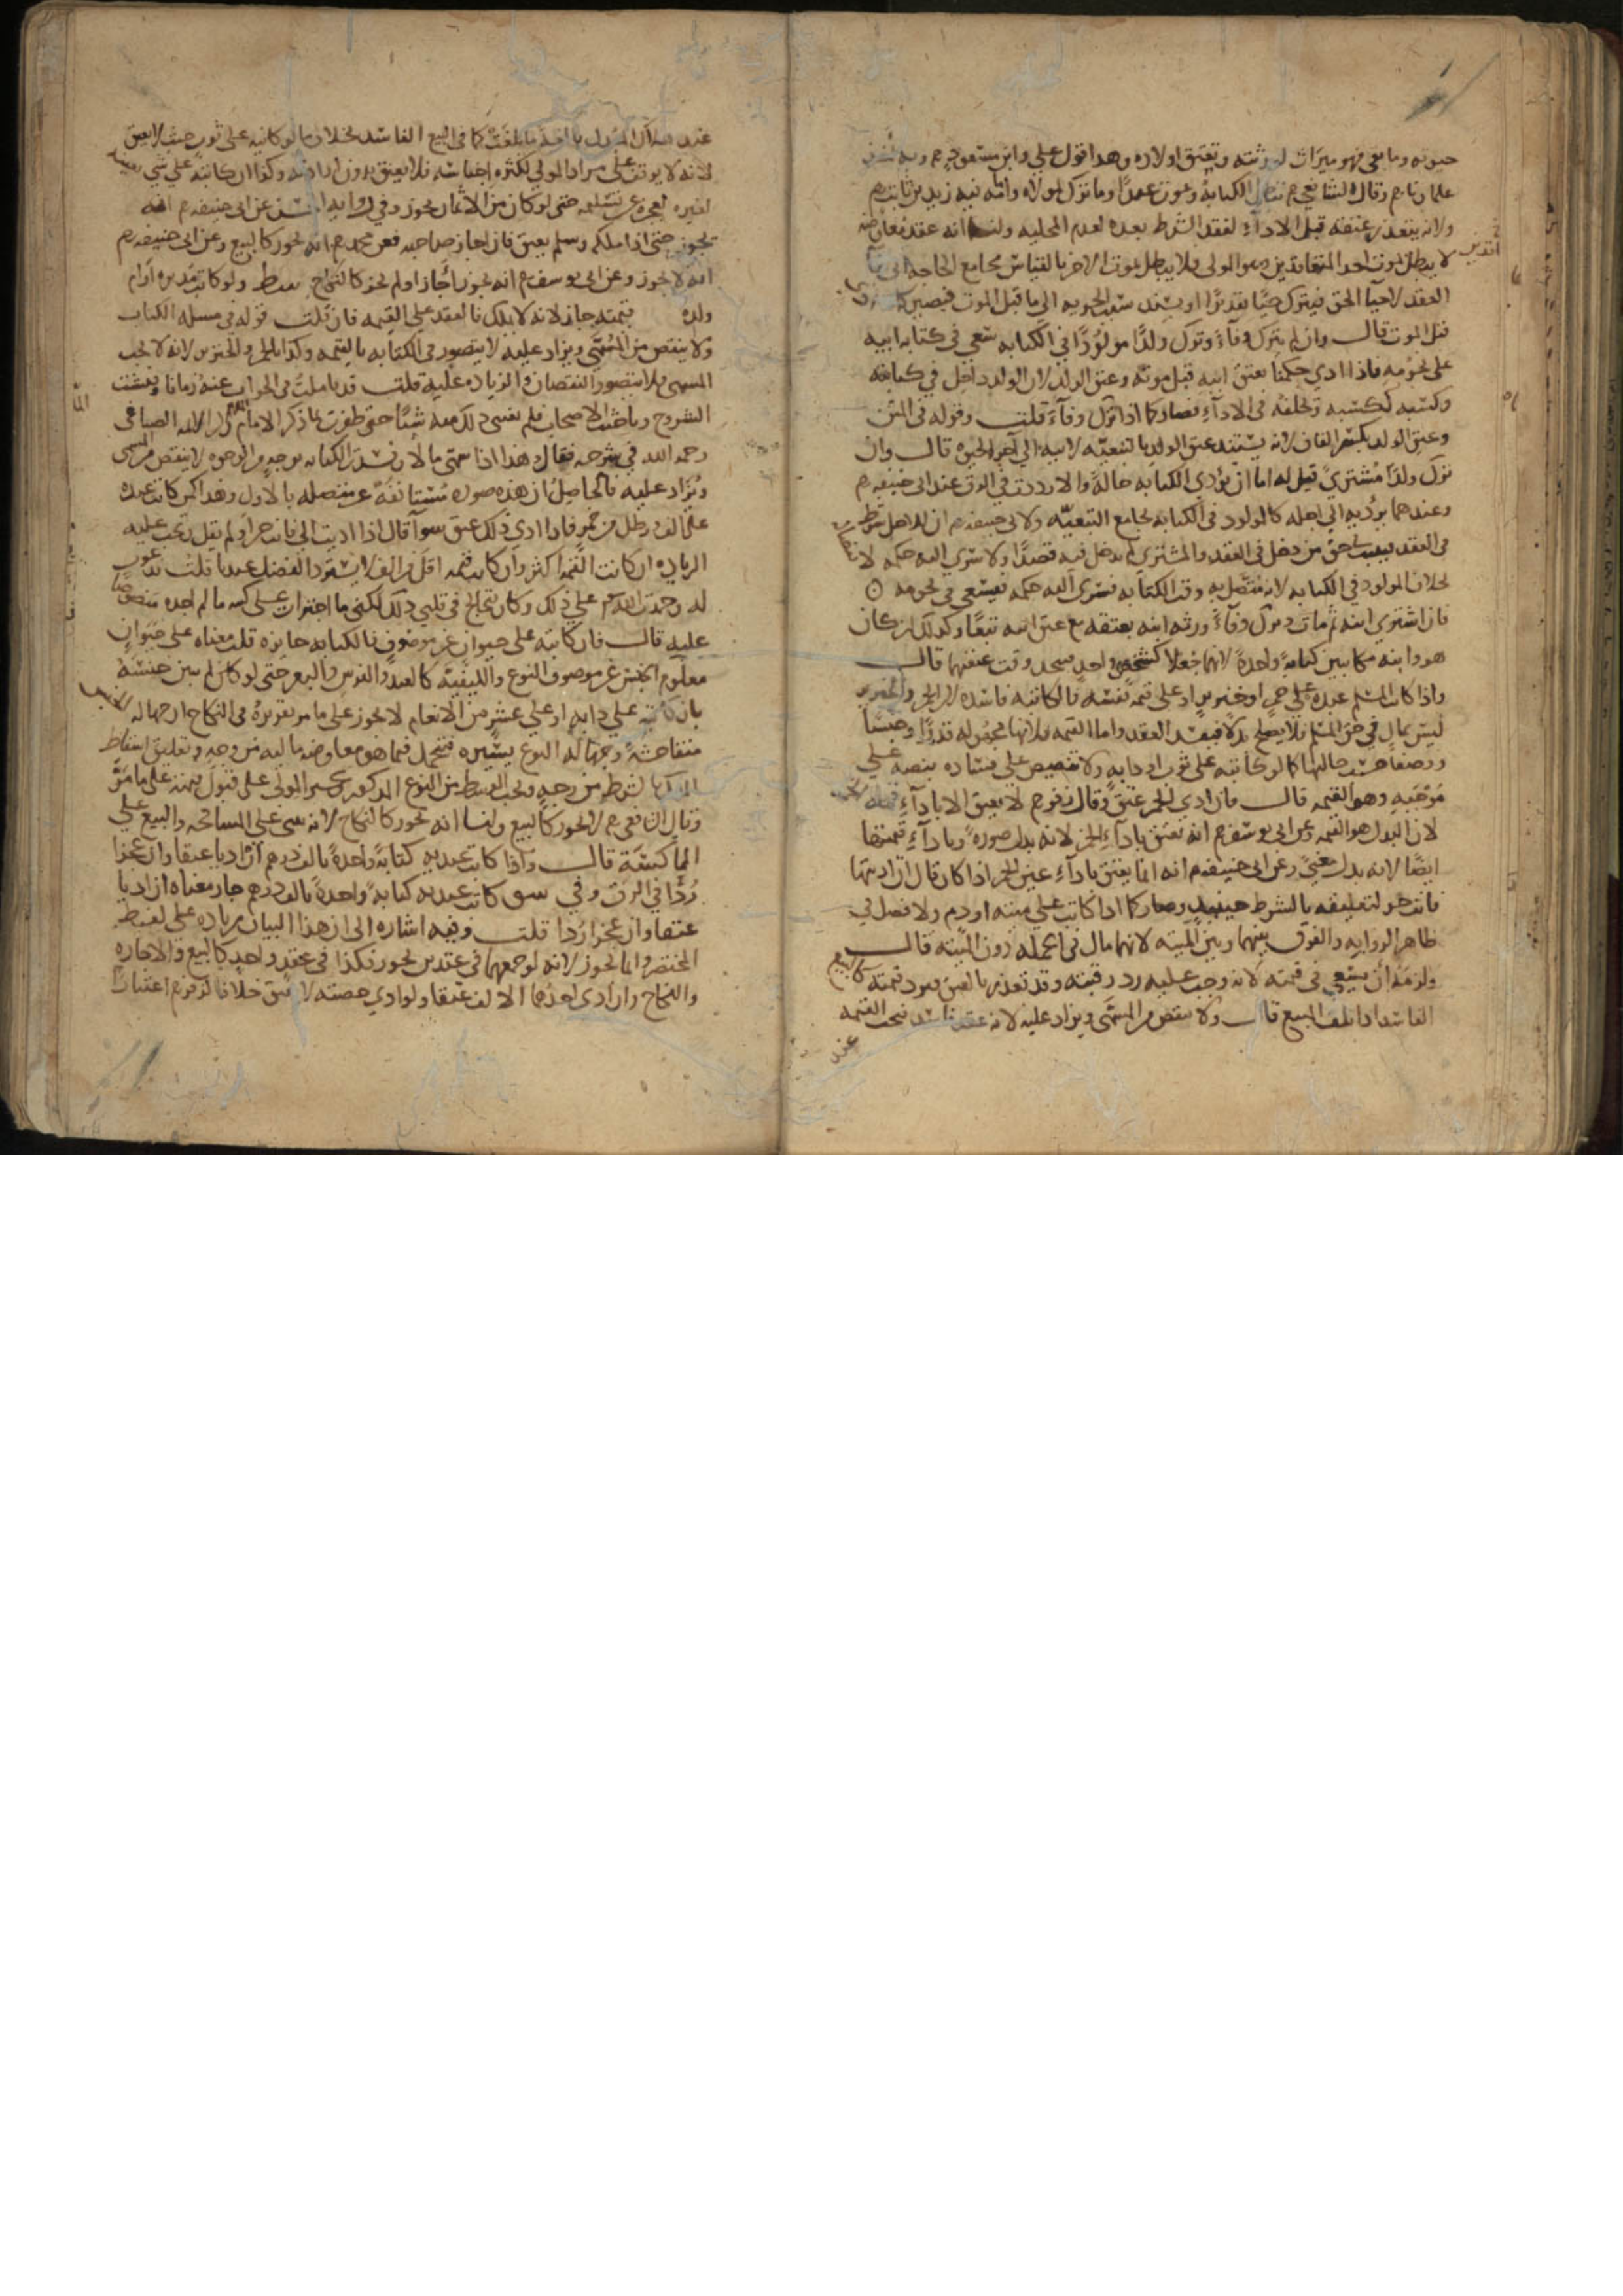 حيوته وما بقي فهو ميراث لورثته وتعتق اولاده وهذا قول علي وابن مسعود رم وبه اخذ
علماؤنا رم وقال الشافعي رم تبطل الكتابة ويموت عبدا وما تركه لمولاه وامامه فيه زيد بن ثابت رم
ولانه يتعذر عتقه قبل الاداء لفقد الشرط بعده لعدم المحلية ولنا انه عقد معاوضة
لا يبطل بموت احد المتعاقدين وهو المولى فلا يبطل بموت الاخر بالقياس بجامع الحاجة الى بقاء
العقد لاحياء الحق فيترك حيا تقديرا او يستند سبب الحرية الى ما قبل الموت فيصير
قبل الموت قال وان لم يترك وفاء وترك ولدا مولودا في الكتابة سعى في كتابة ابيه
على نجومه فاذا ادى حكمنا بعتق ابيه قبل موته وعتق الولد لان الولد داخل في كتابته
وكسبه ككسبه وتخلفه في الاداء فصار كما اذا ترك وفاء قلت وقوله في المتن
وعتق الولد لانه يستند عتق الولد بالتبعية لابيه الى آخر الحيوة قال وان
ترك ولدا مشترى قيل له اما ان تؤدى الكتابة حالة والا رددت في الرق عند ابي حنيفه رم
وعندهما يؤديه الى اجله كالمولود في الكتابة بجامع التبعية ولابي حنيفه رم ان الاجل شرط
في العقد فيثبت في حق من دخل في العقد والمشترى لم يدخل فيه قصدا ولا سرى اليه حكمه
بخلاف المولود في الكتابة لانه متصل به وقت الكتابة فسرى اليه حكمه فيسعى في نجومه
فان اشترى ابنه ثم مات وترك وفاء ورثه ابنه بعتقه مع عتق ابيه تبعا وكذلك ان كان
هو وابنه مكاتبين كتابة واحدة لانهما جعلا كشخص واحد وقت عتقهما قال
واذا كاتب المسلم عبده على خمر او خنزير او على قيمة نفسه فالكتابة فاسدة لان الخمر والخنزير
ليس بمال في حق المسلم فلا يصلح بدلا فيفسد العقد واما القيمه فلانها مجهولة قدرا وجنسا
ووصفا حالها كما لو كاتبه على ثوب او دابة ولانه تنصيص على فساده بنصه على
موجبه وهو القيمه قال فان ادى الخمر عتق وقال زفر رم لا يعتق الا باداء قيمته
لان البدل هو القيمه وعن ابي يوسف رم انه يعتق باداء الخمر لانه بدل صورة وباداء قيمتها
ايضا لانه بدل معنى وعن ابي حنيفه رم انه انما يعتق باداء عين الخمر اذا كان قال ان اديتها
فانت حر لتعليقه بالشرط حينئذ وصار كما اذا كاتب على ميتة او دم ولا فصل في
ظاهر الرواية والفرق بينهما وبين الميتة لانهما مال في الجملة دون الميتة قال
ولزمه ان يسعى في قيمته لانه وجب عليه رد رقبته وقد تعذر بالعتق فيرد قيمته كالبيع
الفاسد اذا تلف المبيع قال ولا ينقص من المسمى ويزاد عليه لانه عقد فاسد فيجب القيمه
عند
عند هلاك المبدل بالغة ما بلغت كما في البيع الفاسد بخلاف ما لو كاتبه على ثوب حيث لا يعتق
لانه لا يوقف على مراد المولى لكثرة اجناسه فلا يعتق بدون ارادته وكذا ان كاتبه على شيء بعينه
لغيره لعجزه عن تسليمه حتى لو كان من الاثمان يجوز وفي رواية عن ابي حنيفه رم انه
يجوز حتى اذا ملكه وسلم يعتق فان اجاز صاحبه فعن محمد رم انه يجوز كالبيع وعن ابي حنيفه رم
انه لا يجوز وعن ابي يوسف رم انه يجوز اجاز او لم يجز كالنكاح
ولده بقيمته جاز لانه لا يملك فالعقد على القيمه فان قلت قوله في مسئلة الكتاب
ولا ينقص من المسمى ويزاد عليه لا يتصور في الكتابة بالقيمه وكذا بالخمر والخنزير لانه لا يجب
المسمى فلا يتصور النقصان والزيادة عليه قلت قد تاملت في الجواب عنه زمانا
الشروح وباحثت الاصحاب فلم يغنني ذلك منه شيئا حتى ظفرت بما ذكر الامام الصباغي
رحمه الله في شرحه فقال هذا اذا سمى مالا وفسدت الكتابة بوجه من الوجوه لا ينقص من المسمى
ويزاد عليه فالحاصل ان هذه صورة مستانفة غير متصلة بالاول وهذا كمن كاتب عبده
على الف ورطل من خمر فاذا ادى ذلك عتق سواء قال اذا اديت الي فانت حر او لم يقل ويجب عليه
الزيادة ان كانت القيمه اكثر وان كانت قيمته اقل من الف لا يسترد الفضل عندنا قلت
له وحمدت الله على ذلك وكان يتخالج في قلبي ذلك لكنني ما اجترات على كتبه ما لم اجده منصوصا
عليه قال فان كاتبه على حيوان غير موصوف فالكتابة جايزة قلت معناه على حيوان
معلوم الجنس غير موصوف النوع والكيفية كالعبد والفرس والبعير حتى لو كان لم يبين جنسه
بان كاتبه على دابة او على عشر من الانعام لا يجوز على ما مر تقريره في النكاح ان جهالة
متفاحشة وجهالة النوع يسيرة فتتحمل فيما هو معاوضة مالية من وجه وتعليق اسقاط
بشرط من وجه ويجب الوسط من النوع المذكور ويجبر المولى على قبول قيمته على ما مر
وقال الشافعي رم لا يجوز كالبيع ولنا انه يجوز كالنكاح لانه مبني على المسامحة والبيع على
المماكسة قال واذا كاتب عبديه كتابة واحدة بالف درهم ان اديا عتقا وان عجزا
ردا في الرق وفي كاتب عبديه كتابة واحدة بالف درهم جاز معناه ان اديا
عتقا وان عجزا ردا قلت وفيه اشارة الى ان هذا البيان زيادة على لفظ
المختصر وانما يجوز لانه لو جمعهما في عقدين يجوز فكذا في عقد واحد كالبيع والاجارة
والنكاح وان ادى احدهما الالف عتقا ولو ادى حصته لا يعتق خلافا لزفر رم اعتبارا